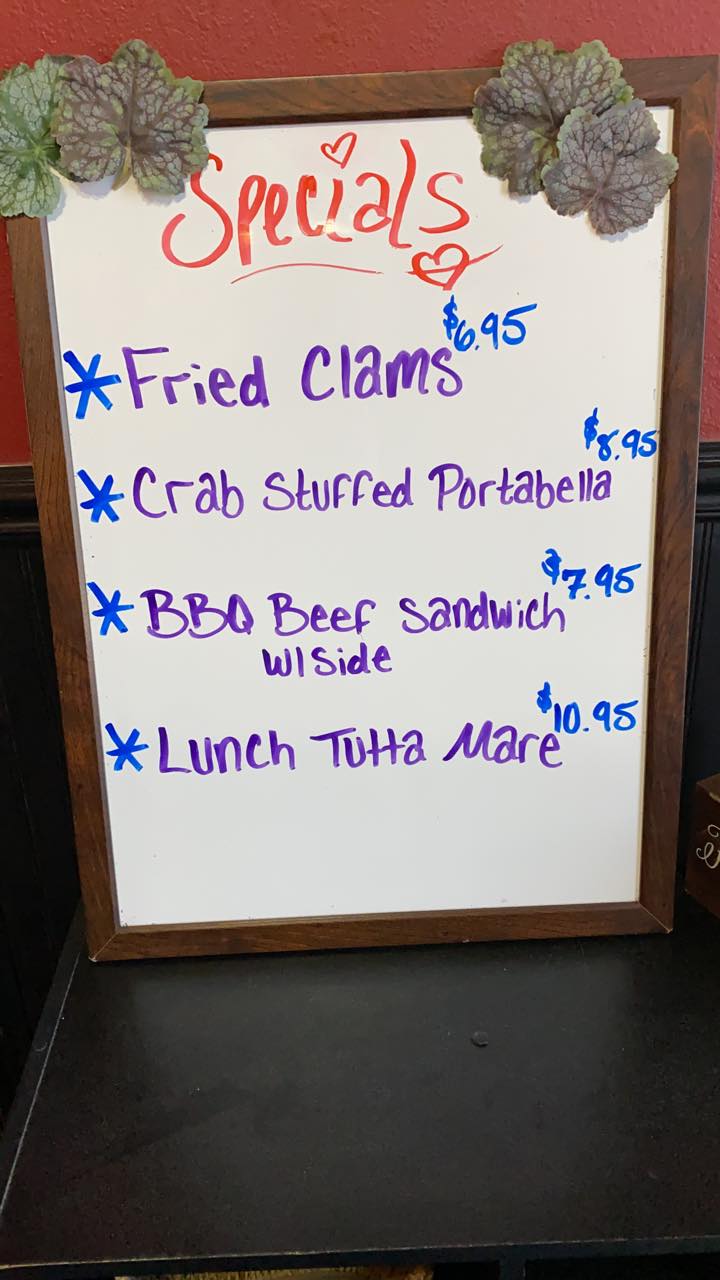 Specials
$6.95
* Fried Clams
$8.95
* Crab Stuffed Portabella
$7.95
* BBQ Beef Sandwich
W/Side
$10.95
* Lunch Tutta Mare